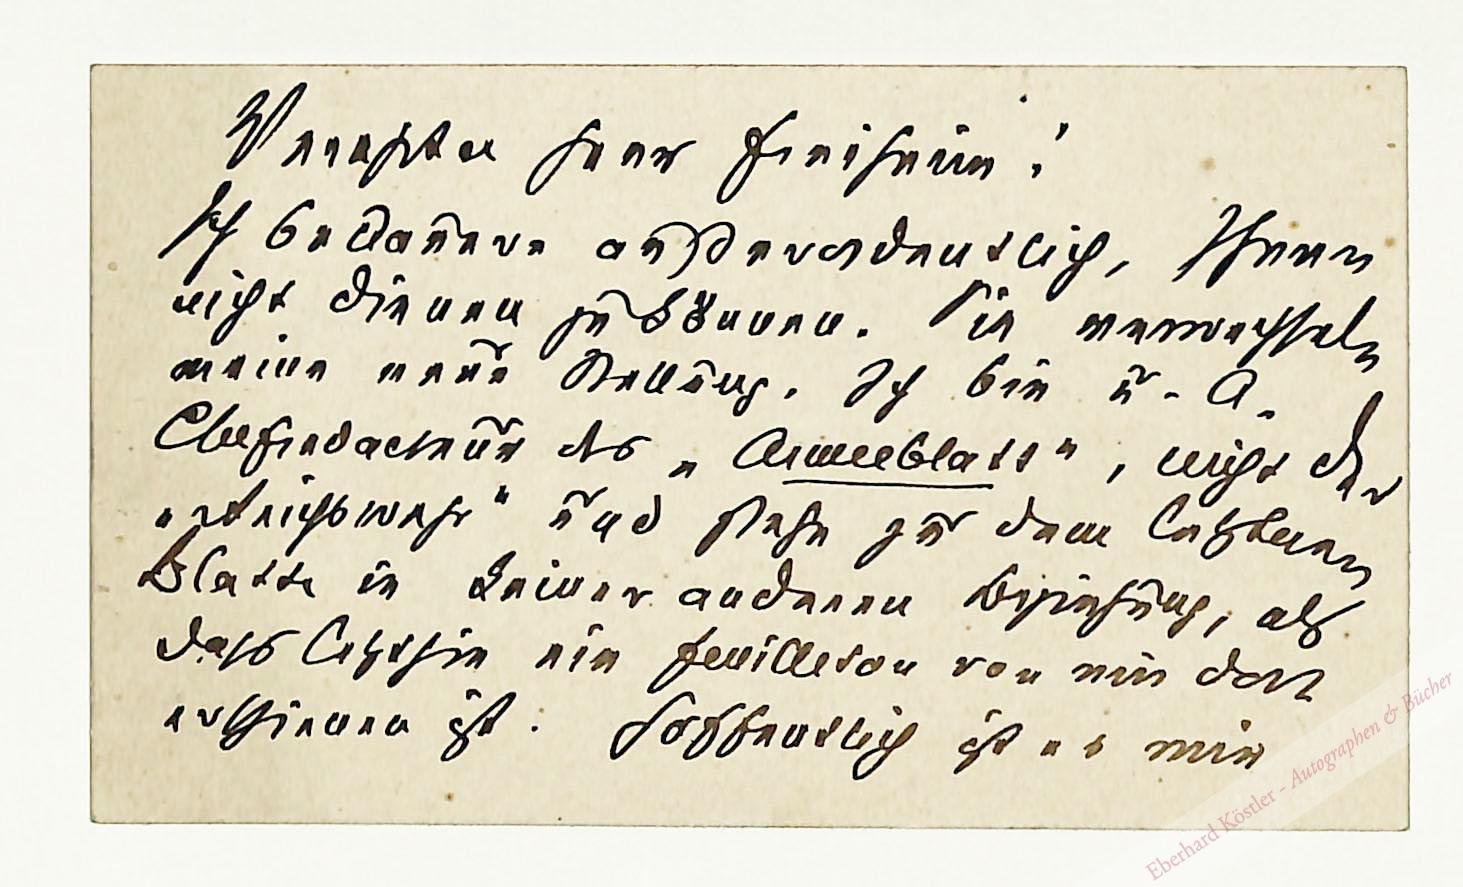 Verehrter Herr Freiherr!
Ich bedauere außerordentlich, Ihnen
nicht dienen zu können. Sie verwechseln
meine neue Stellung. Ich bin u. A.
Chefredacteur des „Armeeblatt", nicht der
„Reichswehr" und stehe zu dem letzteren
Blatte in keiner anderen Beziehung, als
dass letzthin ein Feuilleton von mir dort
erschienen ist. Hoffentlich ist es mir
Eberhard Köstler - Autographen & Bücher